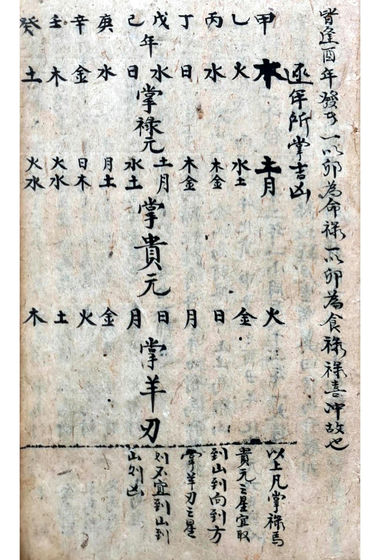 皆逢酉年發一以卯為命祿一以卯為食祿祿喜沖故也
逐年所掌吉凶
甲乙丙丁戊己庚辛壬癸
年
木火水日水日水金木土
掌祿元
土月 水土 木金 木金 土月 水土 月土 日木 火水 火水
掌貴元
火金日月日月金火土木
掌羊刃
以上凡掌祿馬
貴元之星宜取
到山到向到方
掌羊刃之星
則不宜到山到
山則凶